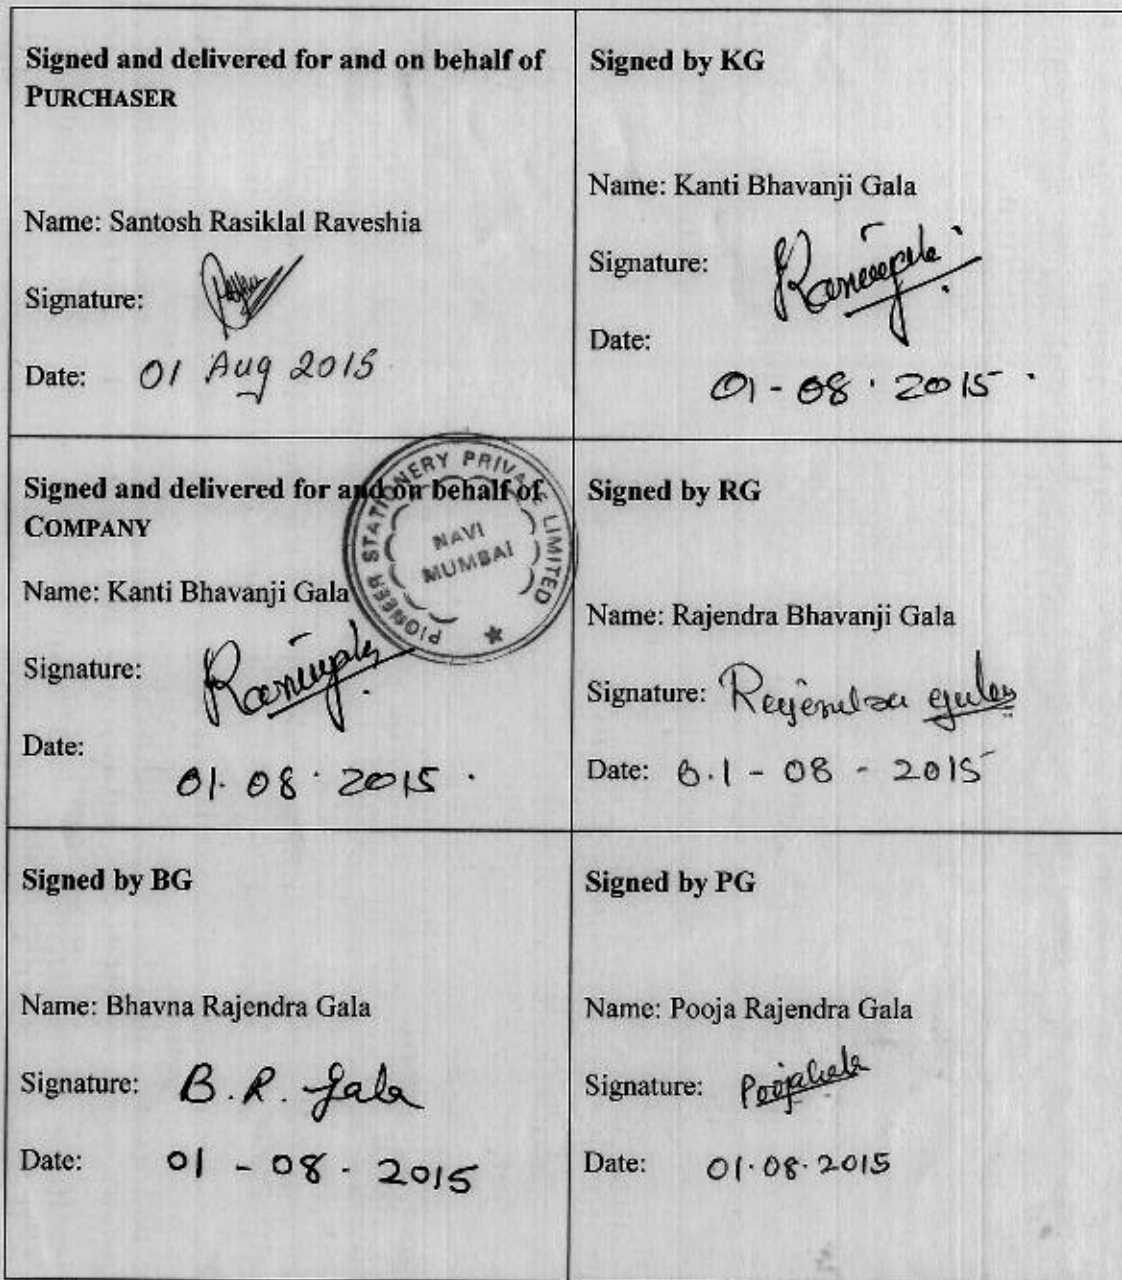 Signed and delivered for and on behalf of
PURCHASER
Name: Santosh Rasiklal Raveshia
Signature:
Date: 01 Aug 2015
Signed by KG
Name: Kanti Bhavanji Gala
Signature:
Date:
01-08.2015.
Signed and delivered for and on behalf of
COMPANY
PIONEER STATIONERY PRIVATE LIMITED
NAVI
MUMBAI
Name: Kanti Bhavanji Gala
Signature:
Date:
01.08.2015.
Signed by RG
Name: Rajendra Bhavanji Gala
Signature: Rajendra gala
Date: 0.1-08-2015
Signed by BG
Name: Bhavna Rajendra Gala
Signature: B.R. Gala
Date: 01-08-2015
Signed by PG
Name: Pooja Rajendra Gala
Signature: PoojaGala
Date: 01.08.2015